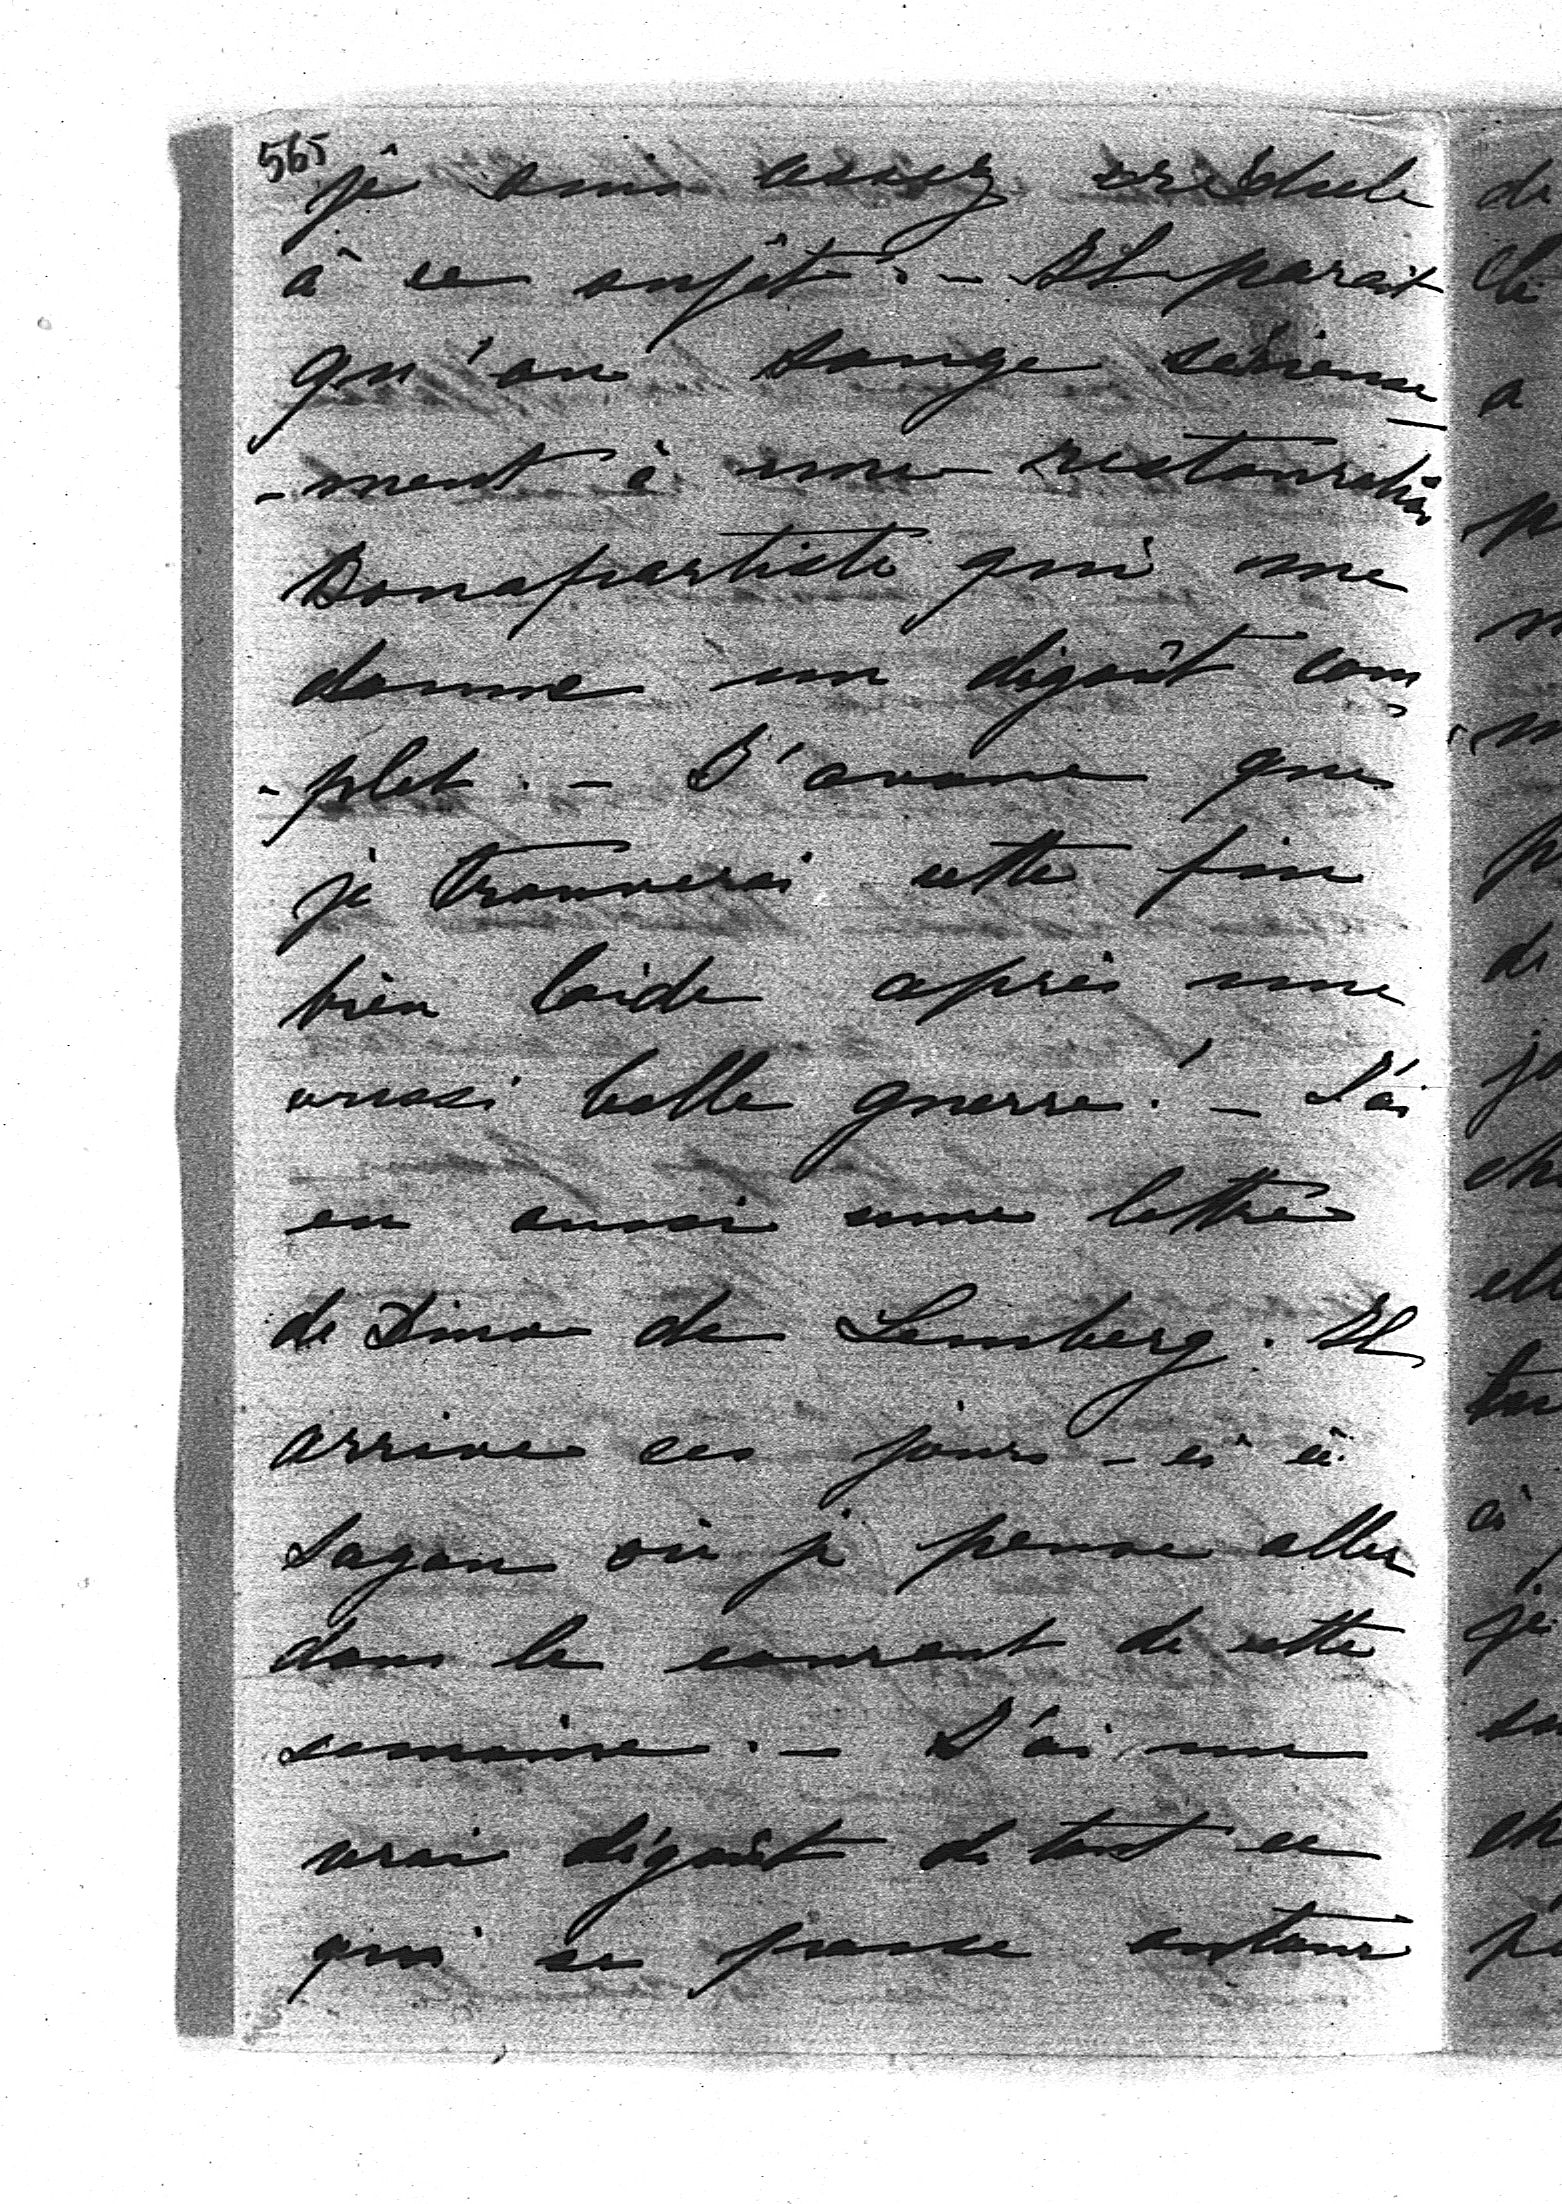 565
je suis assez crédule
à ce sujet. - Il parait
qu'on songe sérieuse
-ment à une restauration
Bonapartiste qui me
donne un dégoût com
-plet. - J'avoue que
je trouverai cette fin
bien laide après une
aussi belle guerre! - J'ai
eu aussi une lettre
de Dino de Lemberg. Il
arrive ces jours-ci à
Sagan où je pense aller
dans le courant de cette
semaine. - J'ai un
vrai dégoût de tout ce
qui se passe autour